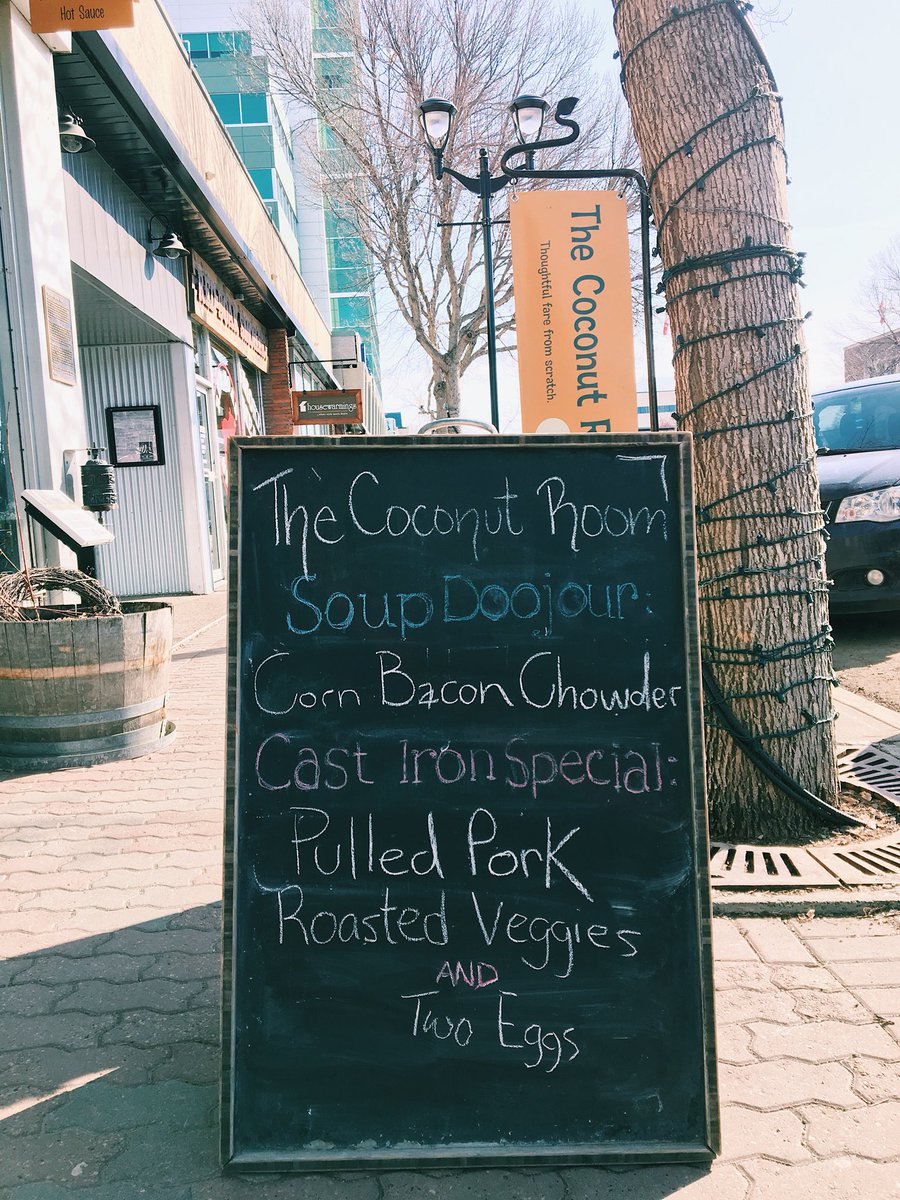 Hot Sauce
The Coconut R
Thoughtful fare from scratch.
housewarmings
The Coconut Room
Soup Doojour:
Corn Bacon Chowder
Cast Iron Special:
Pulled Pork
Roasted Veggies
AND
Two Eggs